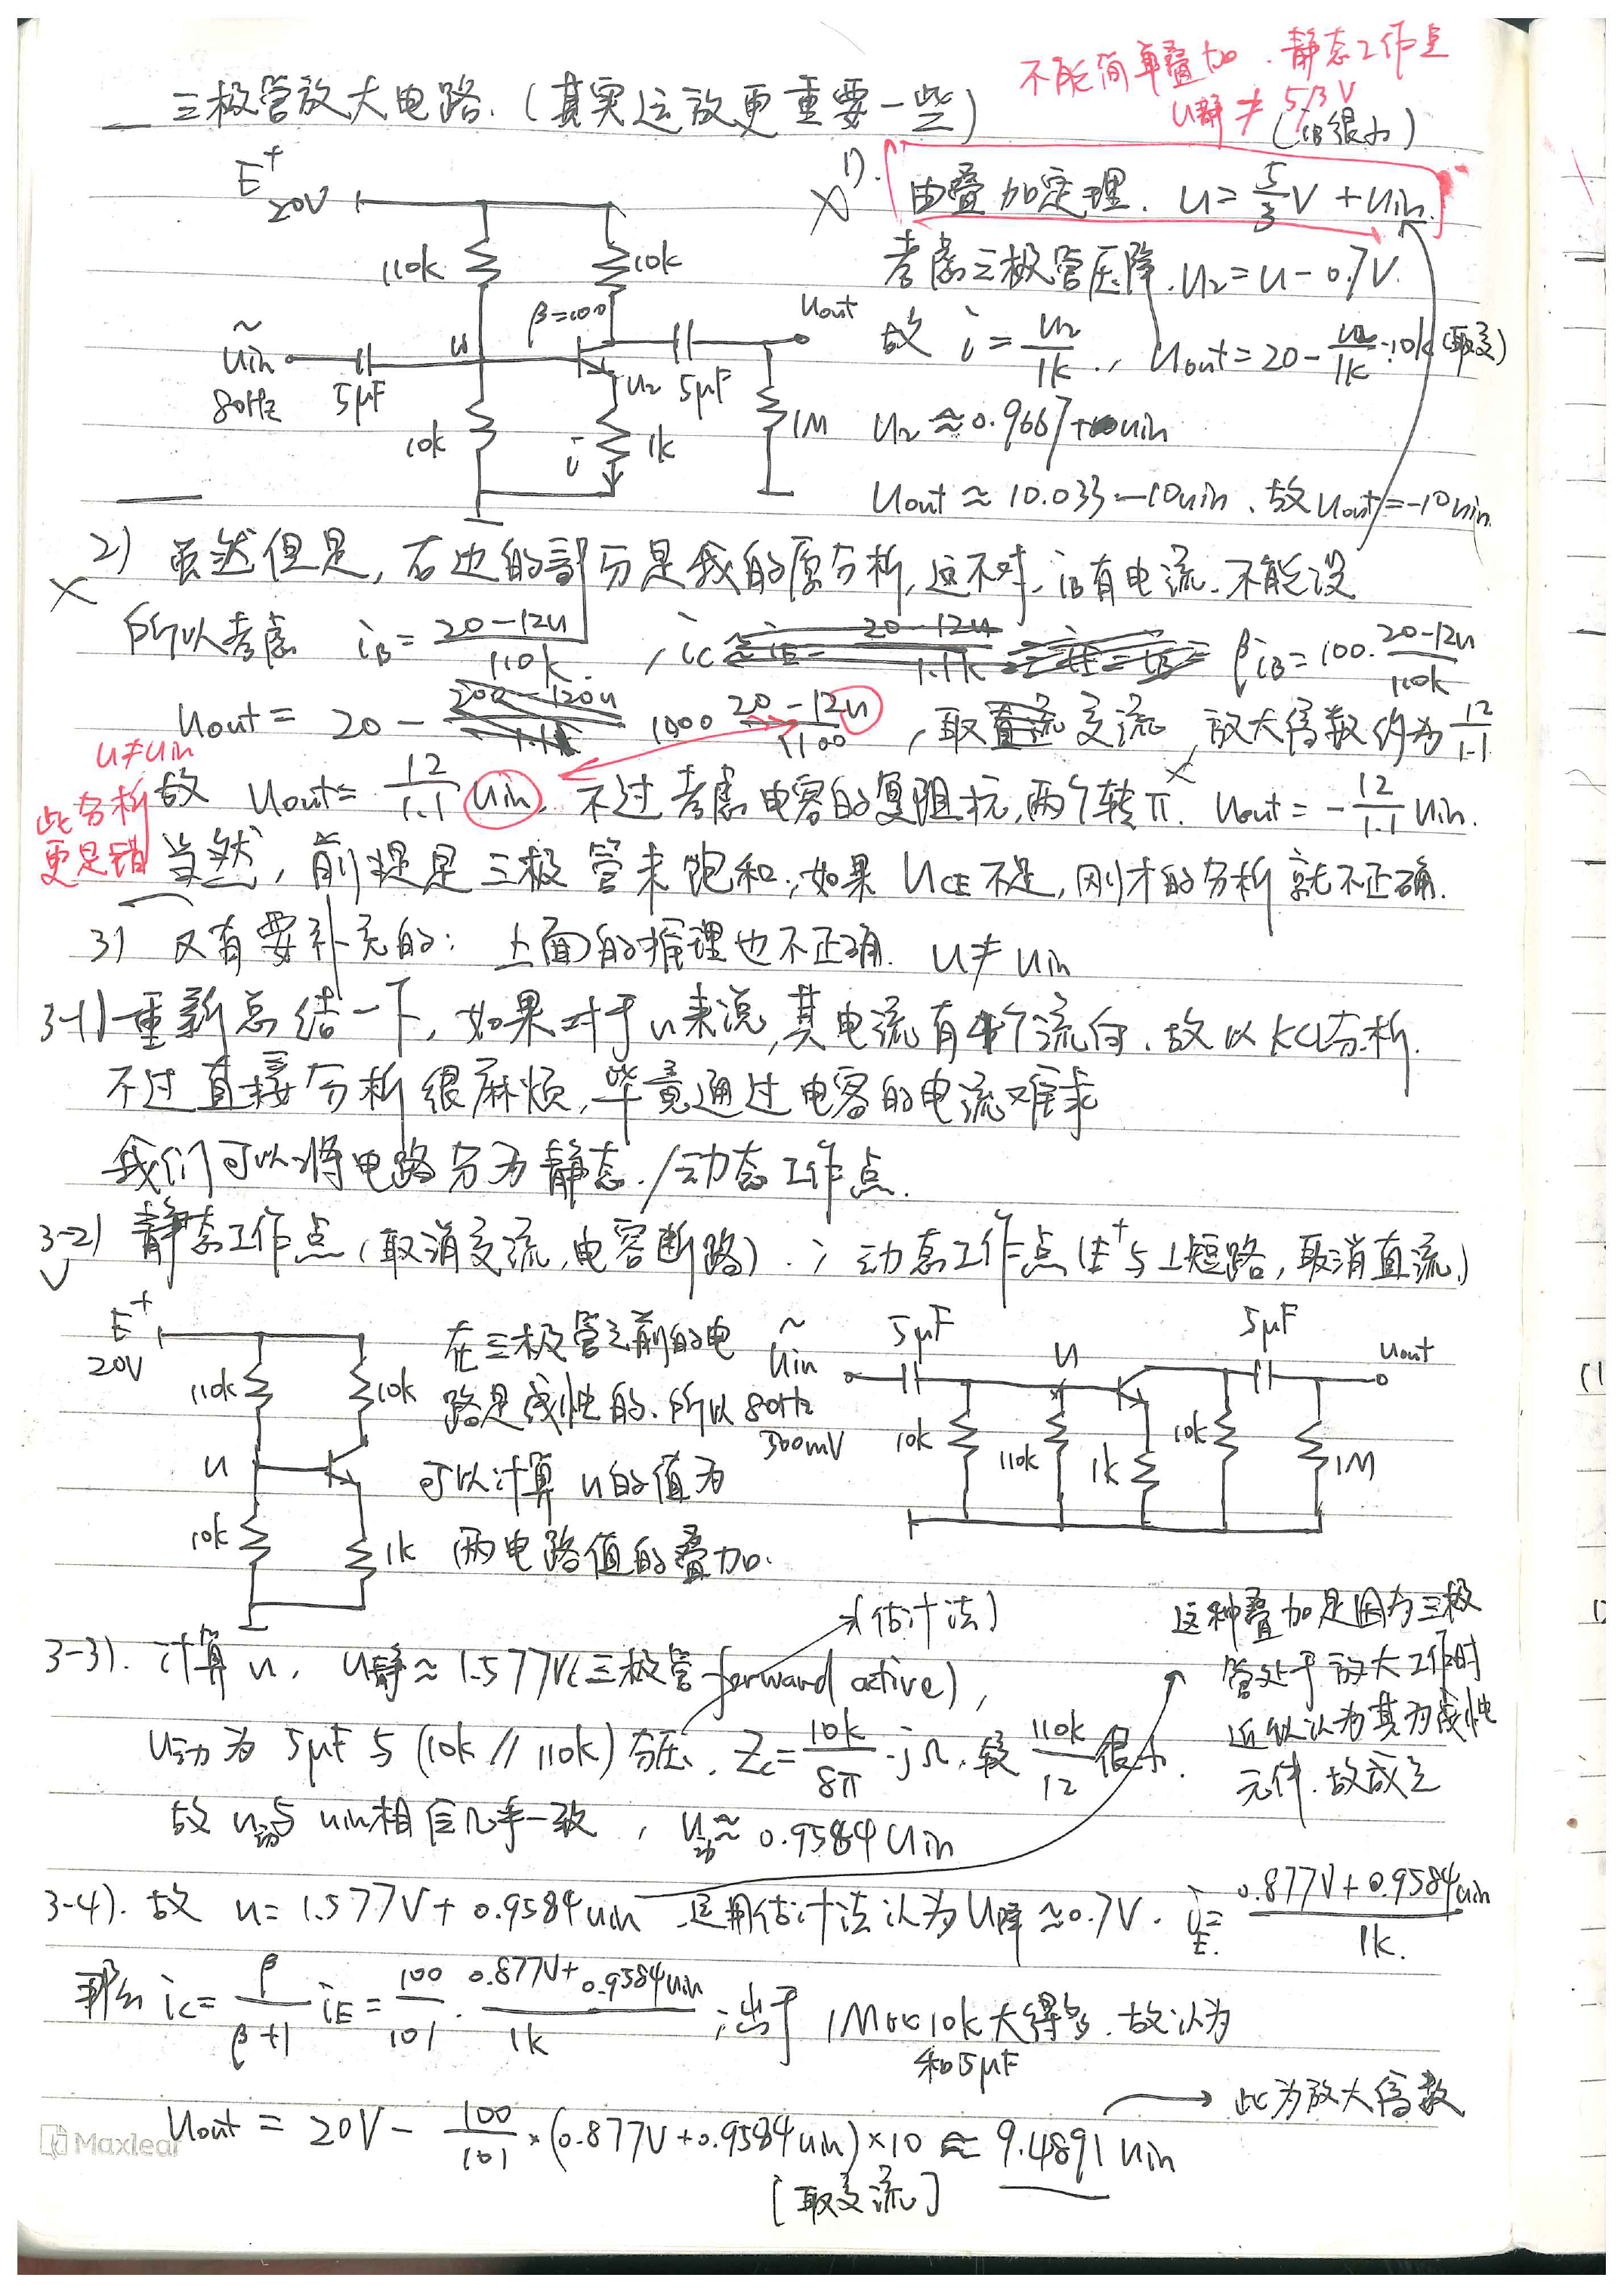 不能简单叠加．静态工作点
u静 ≠ 5/3 V
(iB很小)
三极管放大电路．(其实运放更重要一些)
E+
20V
110k
10k
β=100
uout
ũin
80Hz
5μF
u
u2
5μF
10k
i
1k
1M
1). 由叠加定理．u = 5/3 V + uin.
考虑三极管压降．u2 = u - 0.7V.
故 i = u2/1k ., uout = 20 - u2/1k · 10k (取交)
u2 ≈ 0.9667 + uin
uout ≈ 10.033 - 10uin．故 uout = -10uin.
2) 虽然但是, 右边的部分是我的原分析, 这不对, iB有电流．不能设
所以考虑 iB = (20-12u)/110k , iC = βiB = 100·(20-12u)/110k
uout = 20 - 1000 (20-12u)/1100 , 取交流, 放大倍数约为 12/1.1
u≠uin
此分析
更是错
故 uout = 12/1.1 uin．不过考虑电容的复阻抗, 两个转π．uout = -12/1.1 uin.
当然, 前提是三极管未饱和; 如果 UCE 不足, 刚才的分析就不正确.
3) 又有要补充的: 上面的推理也不正确．u≠uin
3-1) 重新总结一下, 如果对于u来说, 其电流有4个流向．故以KCL分析.
不过直接分析很麻烦, 毕竟通过电容的电流难求
我们可以将电路分为静态./动态工作点.
3-2) 静态工作点 (取消交流, 电容断路) .; 动态工作点 (E+与⊥短路, 取消直流)
E+
20V
110k
10k
u
10k
1k
在三极管之前的电
路是线性的．所以
可以计算 u的值为
两电路值的叠加.
ũin
80Hz
300mV
5μF
u
5μF
uout
10k
110k
1k
10k
1M
(估计法)
这种叠加是因为三极
管处于放大工作时
近似认为其为线性
元件．故成立
3-3). 计算 u, u静 ≈ 1.577V (三极管 forward active),
u动为 5μF 与 (10k // 110k) 分压．Zc = 10k/8π ·jΩ．较 110k/12 很小.
故 u动与 uin相位几乎一致, u动 ≈ 0.9584 uin
3-4). 故 u = 1.577V + 0.9584 uin 运用估计法认为 U降 ≈ 0.7V. iE = (0.877V + 0.9584 uin)/1k.
那么 iC = β/(β+1) iE = 100/101 · (0.877V + 0.9584 uin)/1k ; 出于 1M比10k大得多．故认为
和5μF
uout = 20V - 100/101 × (0.877V + 0.9584 uin) × 10 ≈ 9.4891 uin
[取交流]
此为放大倍数
Maxleaf